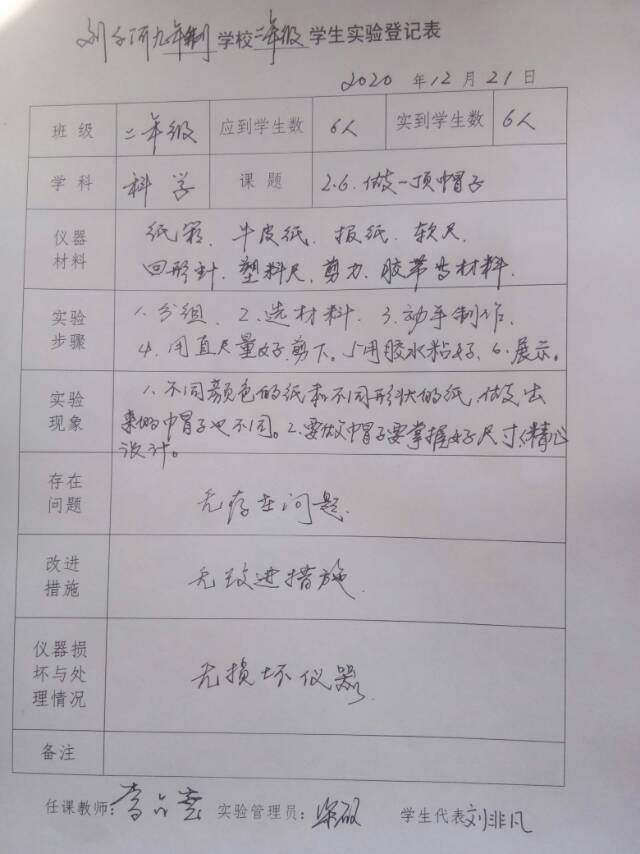 刘 河九年制学校二年级学生实验登记表
2020 年 12 月 21 日
班级 二年级 应到学生数 6人 实到学生数 6人
学科 科学 课题 2.6.做一顶帽子
仪器材料 纸 、牛皮纸、报纸、软尺、
回形针、塑料尺、剪刀、胶带 材料.
实验步骤 1.分组、2.选材料、3.动手制作、
4.用直尺量好剪下。5用胶水粘好、6.展示。
实验现象 1.不同颜色的纸和不同形状的纸,做出
来的帽子也不同。2.要做帽子要掌握好尺寸 精心
设计。
存在问题 无存在问题.
改进措施 无改进措施.
仪器损坏与处理情况 无损坏仪器.
备注
任课教师: 实验管理员: 学生代表刘非凡